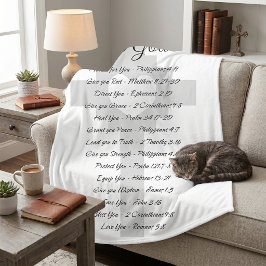 You
for You - Philippians 4:19
Give you Rest - Matthew 11:27-30
Direct You - Ephesians 2:10
Give you Grace - 2 Corinthians 9:8
Heal You - Psalm 34:17-20
Grant you Peace - Philippians 4:7
Lead you to Truth - 2 Timothy 3:16
Give you Strength - Philippians 4:
Protect You - Psalm 121:7-
Equip You - Hebrews 13:21
Give you Wisdom - James 1:5
You - John 3:16
You - 2 Corinthians 9:8
Love You - Romans 5:8